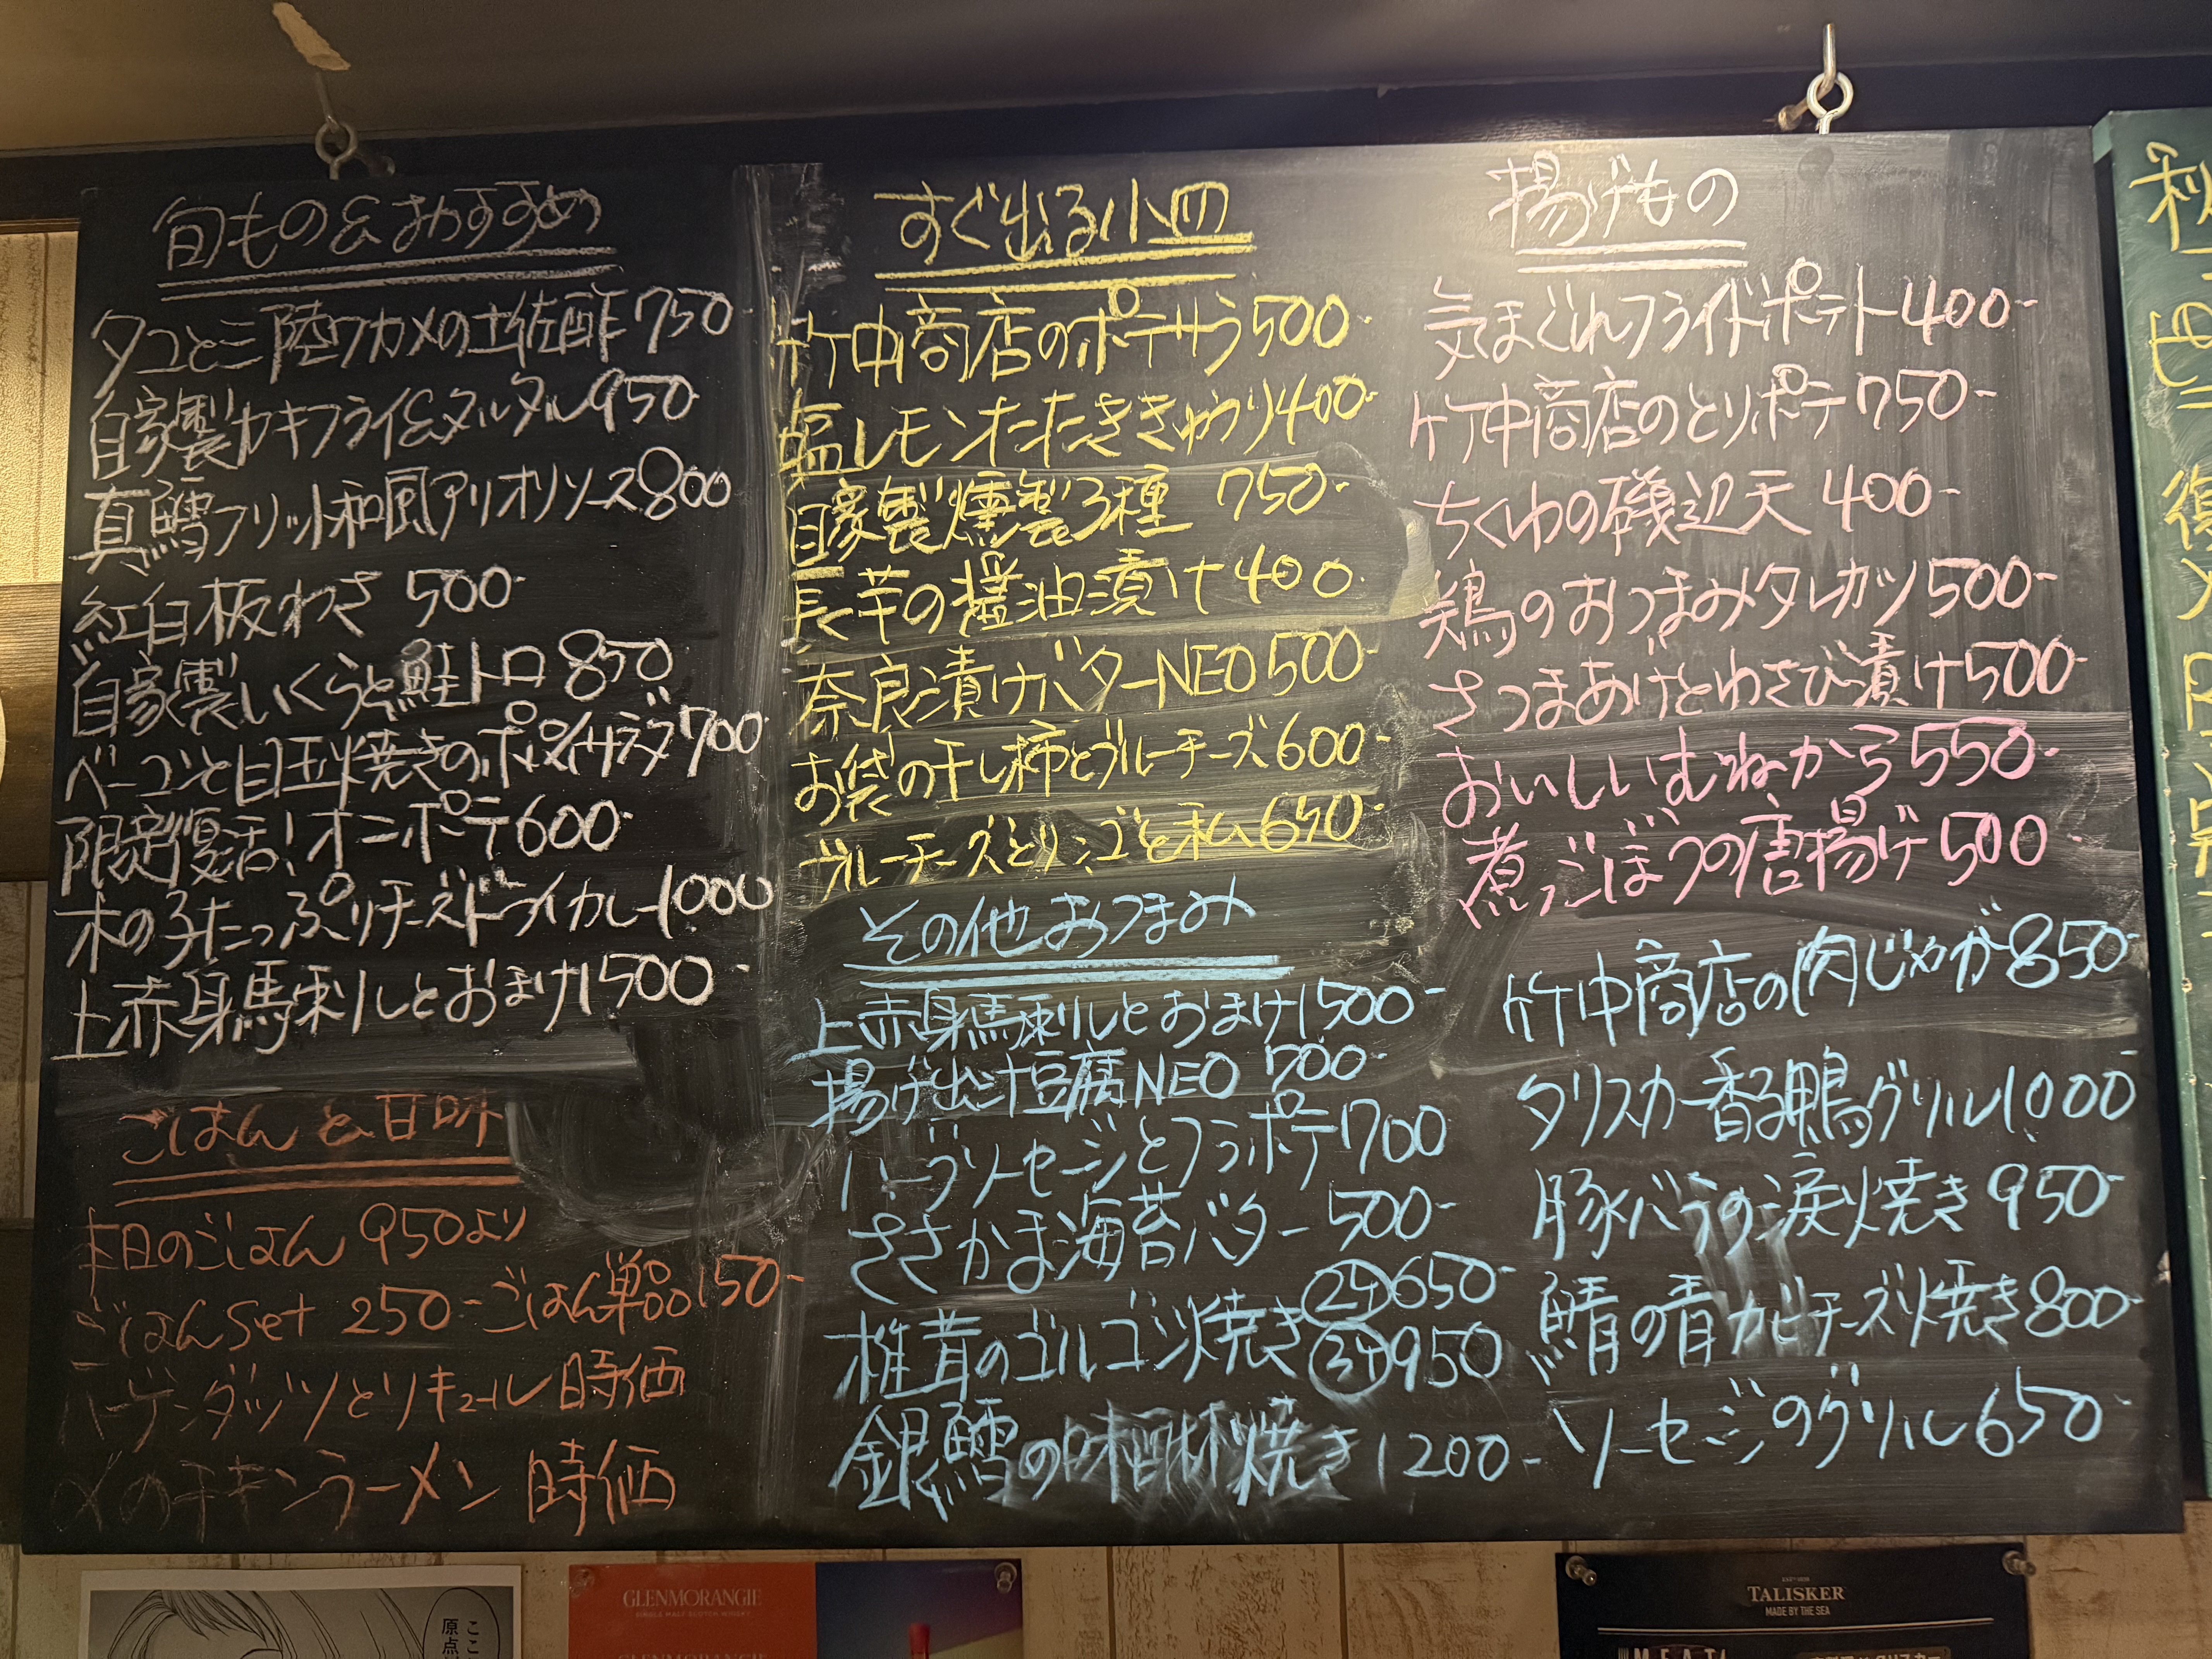 旬もの&おすすめ
タコと三陸ワカメの土佐酢750-
自家製カキフライ&タルタル950
真鱈フリット和風アリオリソース800
紅白板わさ 500-
自家製いくらと鮭トロ 850
ベーコンと目玉焼きのポパイサラダ700
限定復活!オニポテ600-
木の子たっぷりチーズドライカレー1000
上赤身馬刺しとおまけ1500-
ごはんと甘味
本日のごはん 950より
ごはんset 250-ごはん単品150-
ハーゲンダッツとリキュール 時価
〆のチキンラーメン 時価
すぐ出る小皿
竹中商店のポテサラ500-
塩レモンたたききゅうり400-
自家製燻製3種 750-
長芋の醤油漬け400-
奈良漬けバターNEO500-
お袋の干し柿とブルーチーズ600-
ブルーチーズとリンゴと私650-
その他おつまみ
上赤身馬刺しとおまけ1500-
揚げ出汁豆腐NEO 700-
ハーブソーセージとフラポテ700
ささかま海苔バター 500-
椎茸のゴルゴン焼き
2ケ650-
3ケ950
銀鱈の味醂焼き1200-
揚げもの
気まぐれフライドポテト400-
竹中商店のとりポテ750-
ちくわの磯辺天 400-
鶏のおつまみタレカツ500-
さつまあげとわさび漬け500-
おいしいむねから550-
煮ごぼうの唐揚げ500-
竹中商店の肉じゃが850-
タリスカー香る鴨グリル1000-
豚バラの涙焼き 950-
鯖の青カビチーズ焼き800-
ソーセージのグリル650-
GLENMORANGIE
SINGLE MALT SCOTCH WHISKY
TALISKER
MADE BY THE SEA
原点